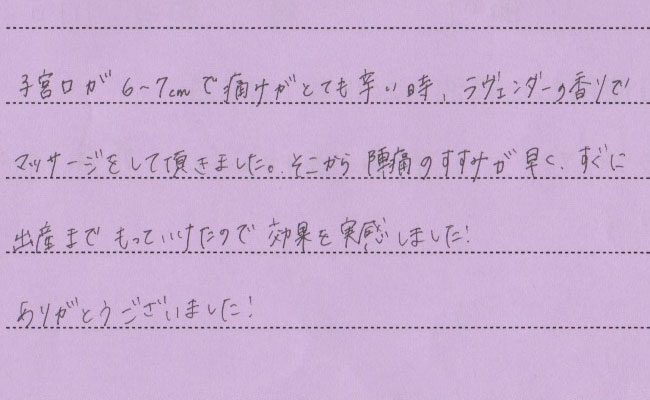 子宮口が6~7cmで痛みがとても辛い時、ラヴェンダーの香りで
マッサージをして頂きました。そこから陣痛のすすみが早く、すぐに
出産までもっていけたので効果を実感しました!
ありがとうございました!